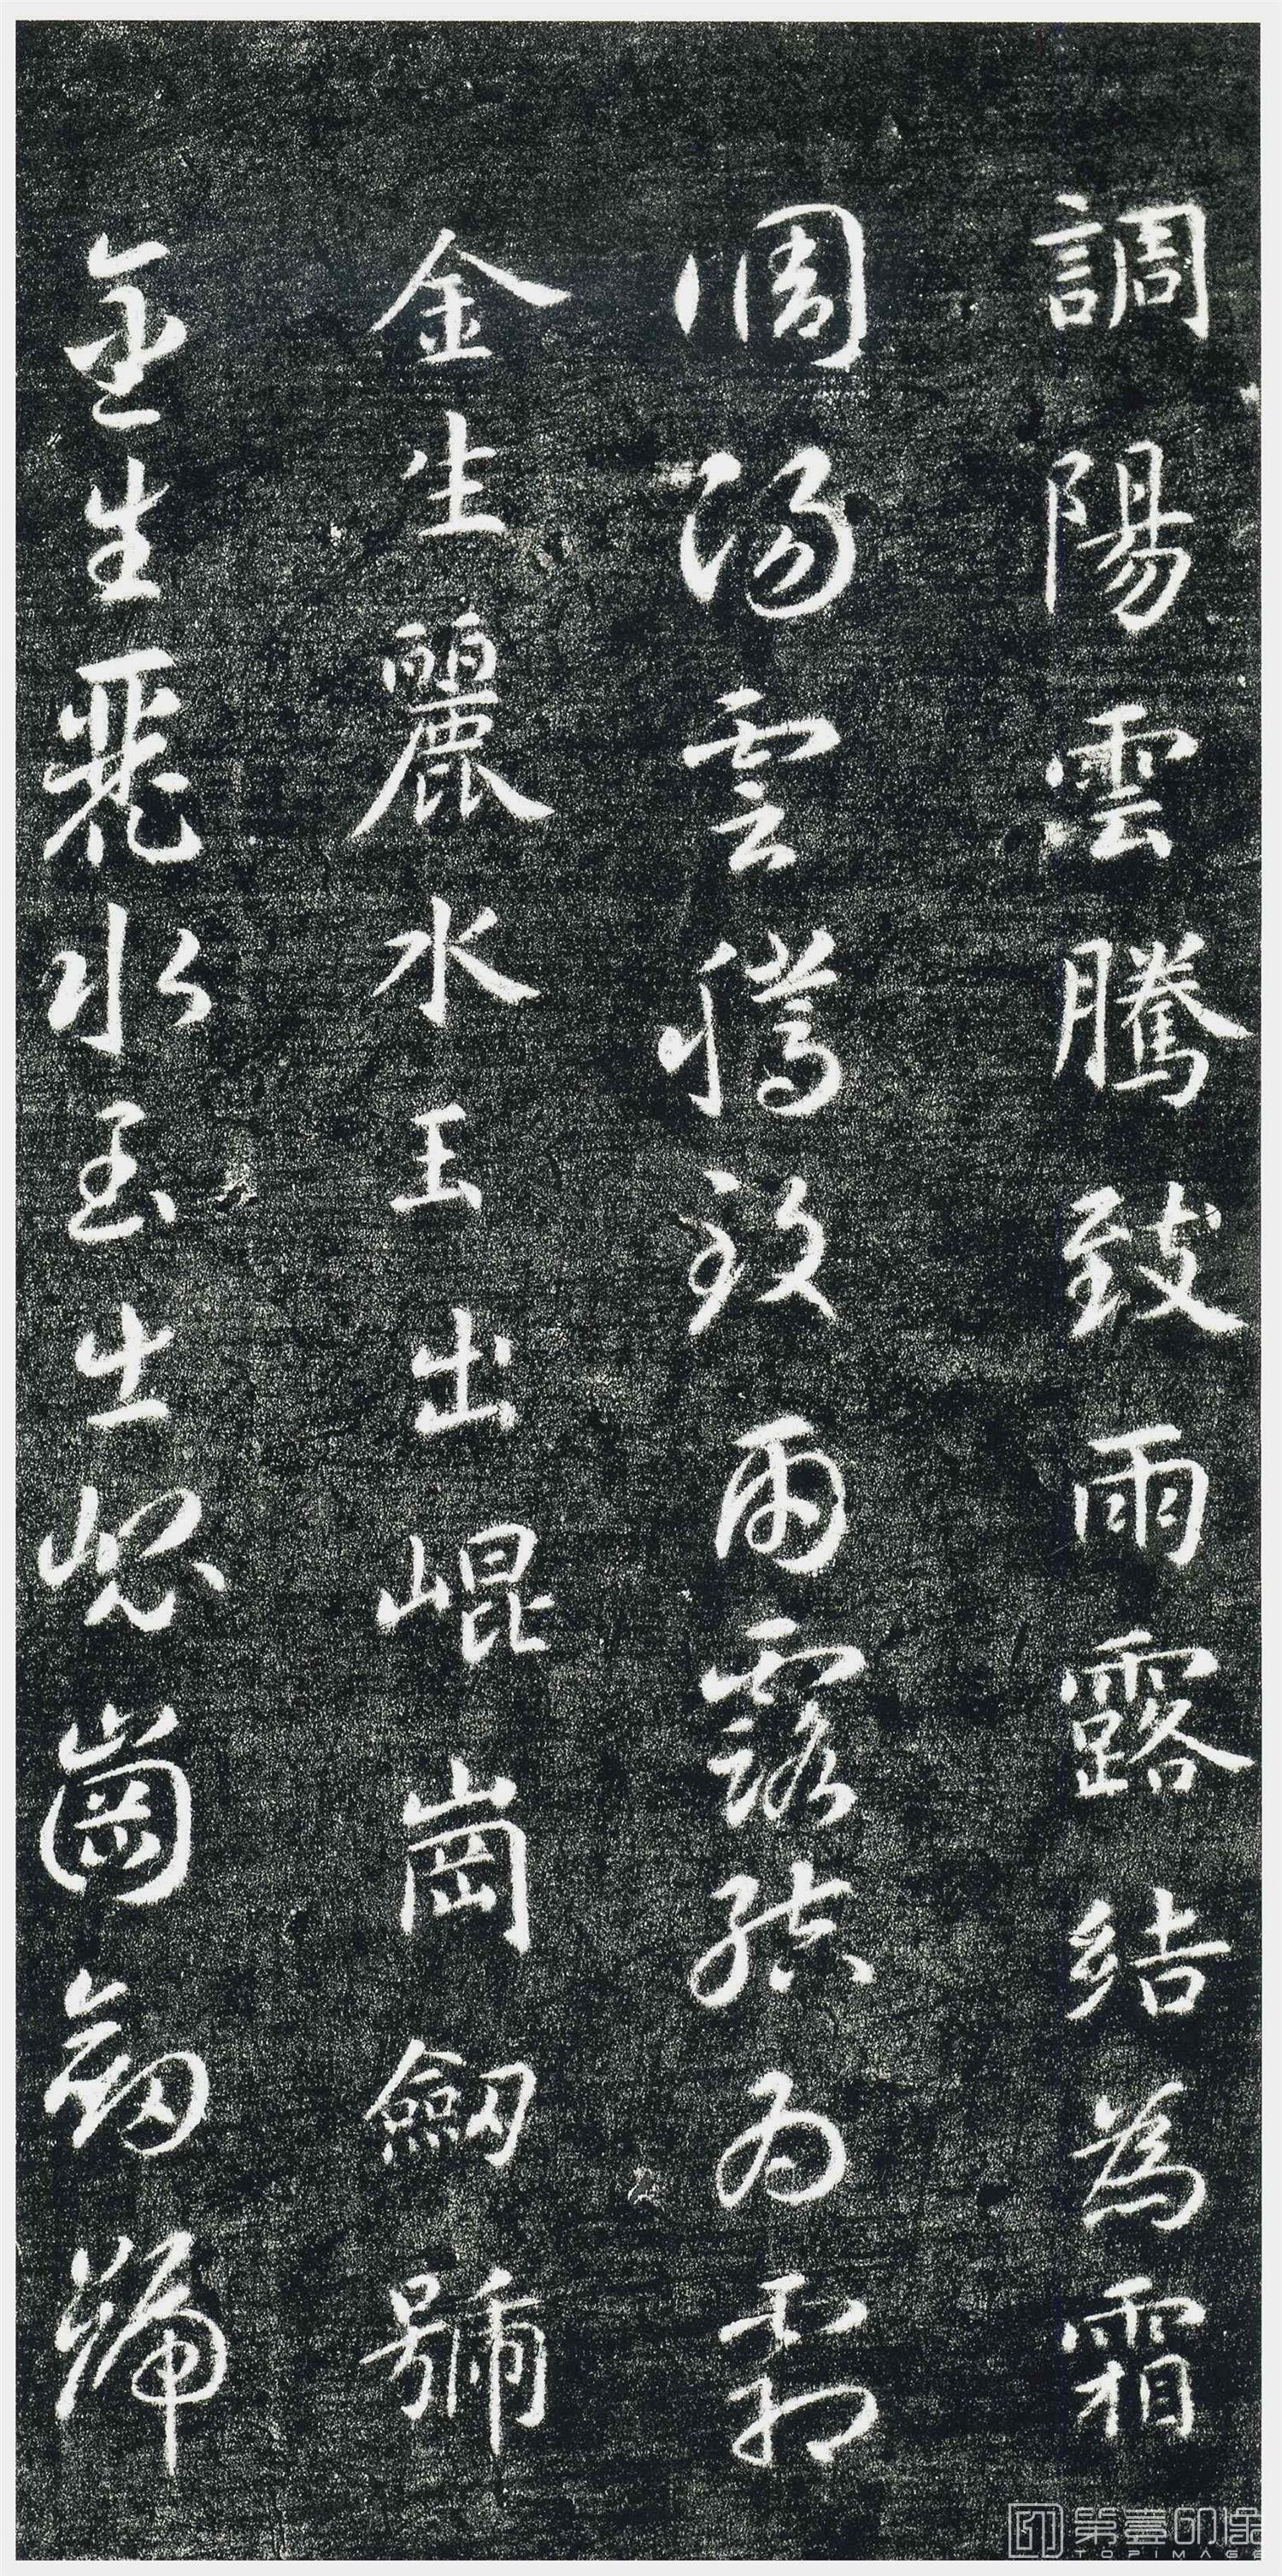 調陽雲騰致雨露結為霜
調陽雲騰致雨露結為霜
金生麗水玉出崐崗劒號
金生麗水玉出崐崗劒號
第壹印像
TOPIMAGE